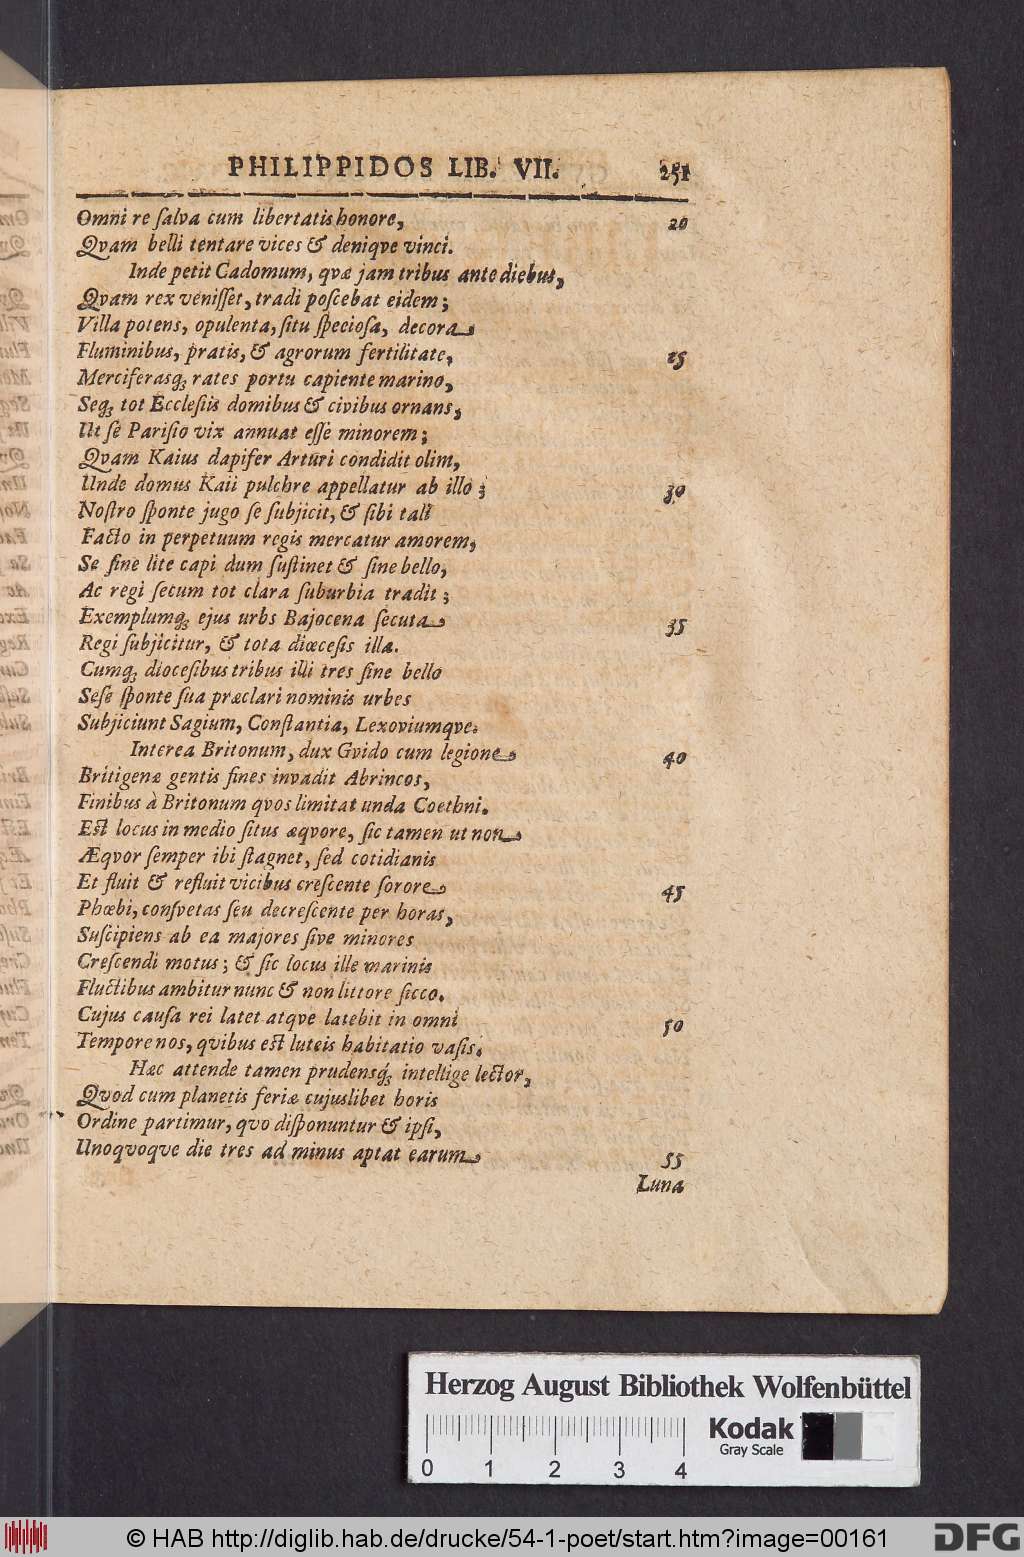 PHILIPPIDOS LIB. VII. 251
Omni re ſalva cum libertatis honore, 20
Qvam belli tentare vices & deniqve vinci.
Inde petit Cadomum, qvæ jam tribus ante diebus,
Qvam rex veniſſet, tradi poſcebat eidem;
Villa potens, opulenta, ſitu ſpecioſa, decora
Fluminibus, pratis, & agrorum fertilitate, 25
Merciferasq; rates portu capiente marino,
Seq; tot Eccleſiis domibus & civibus ornans,
Ut ſe Pariſio vix annuat eſſe minorem;
Qvam Kaius dapifer Arturi condidit olim,
Unde domus Kaii pulchre appellatur ab illo; 30
Noſtro ſponte jugo ſe ſubjicit, & ſibi tali
Facto in perpetuum regis mercatur amorem,
Se ſine lite capi dum ſuſtinet & ſine bello,
Ac regi ſecum tot clara ſuburbia tradit;
Exemplumq; ejus urbs Bajocena ſecuta 35
Regi ſubjicitur, & tota diœceſis illa.
Cumq; dioceſibus tribus illi tres ſine bello
Seſe ſponte ſua præclari nominis urbes
Subjiciunt Sagium, Conſtantia, Lexoviumqve.
Interea Britonum, dux Gvido cum legione 40
Britigenæ gentis fines invadit Abrincos,
Finibus à Britonum qvos limitat unda Coethni.
Eſt locus in medio ſitus æqvore, ſic tamen ut non
Æqvor ſemper ibi ſtagnet, ſed cotidianis
Et fluit & refluit vicibus creſcente ſorore 45
Phœbi, conſvetas ſeu decreſcente per horas,
Suſcipiens ab ea majores ſive minores
Creſcendi motus; & ſic locus ille marinis
Fluctibus ambitur nunc & non littore ſicco.
Cujus cauſa rei latet atqve latebit in omni 50
Tempore nos, qvibus eſt luteis habitatio vaſis.
Hæc attende tamen prudensq; intellige lector,
Qvod cum planetis feriæ cujuslibet horis
Ordine partimur, qvo diſponuntur & ipſi,
Unoqvoqve die tres ad minus aptat earum 55
Luna
Herzog August Bibliothek Wolfenbüttel
Kodak
Gray Scale
0 1 2 3 4
© HAB http://diglib.hab.de/drucke/54-1-poet/start.htm?image=00161
DFG